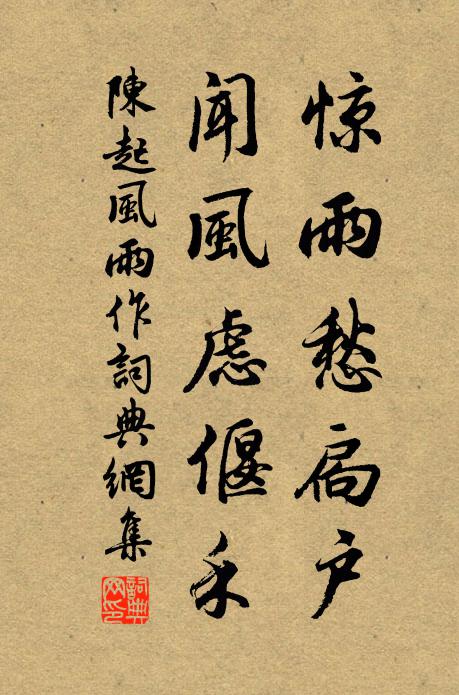 惊雨愁扃户
闻風虑偃禾
陳起風雨作詞典網集
詞典網印